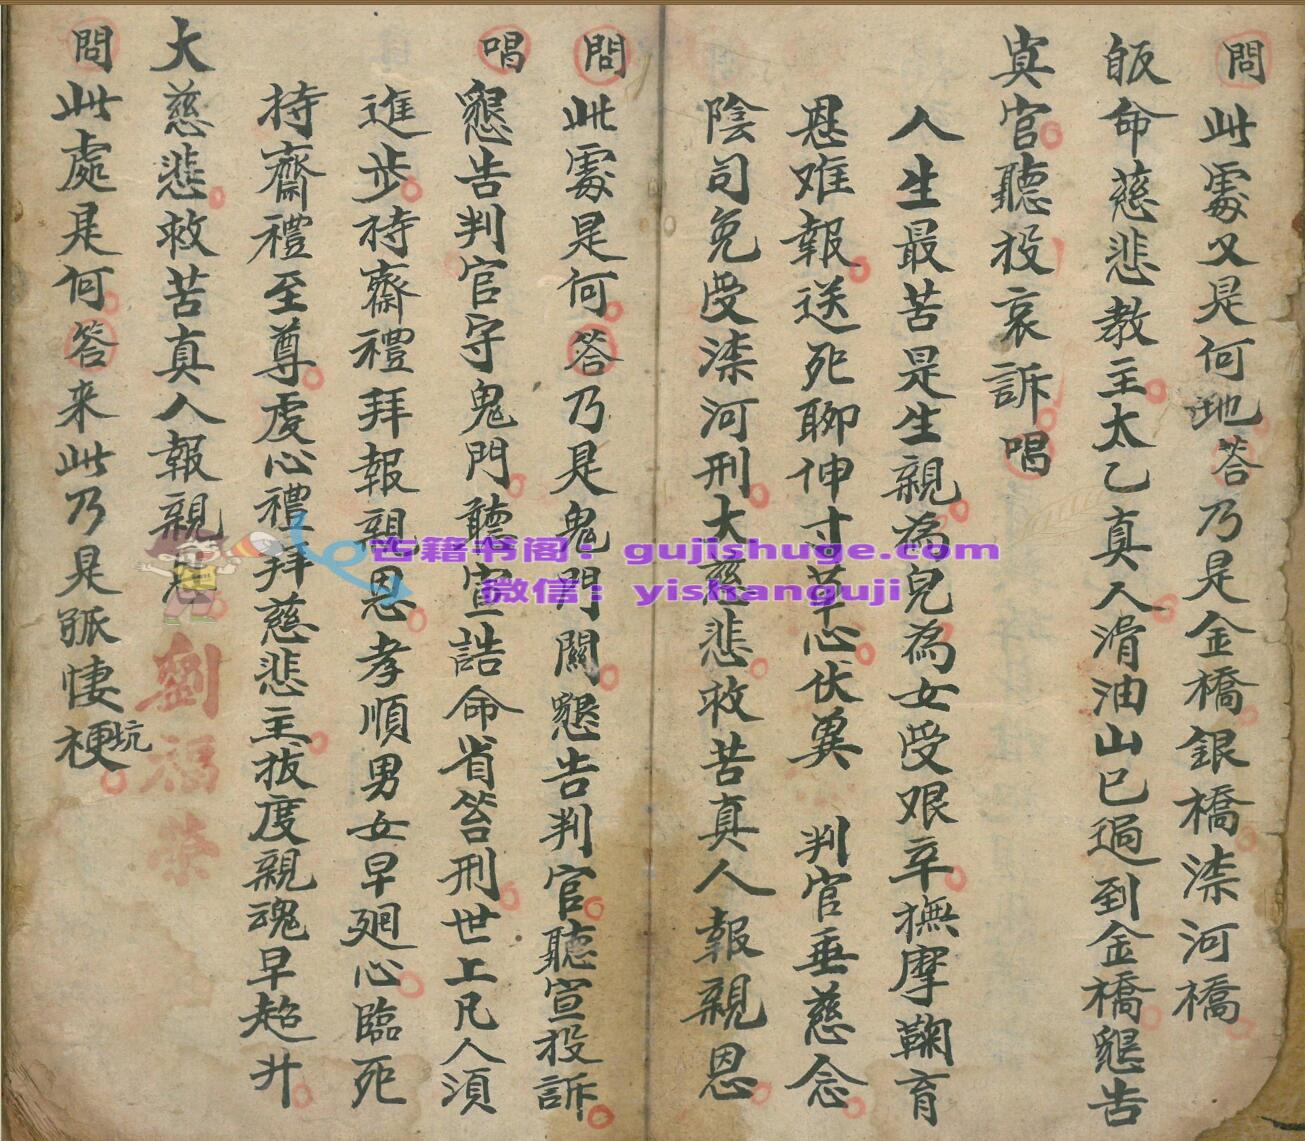 問此處又是何地答乃是金橋銀橋㴃河橋
皈命慈悲教主太乙真人滑油山已過到金橋懇告
真官聽投哀訴唱
人生最苦是生親為兒為女受艰辛撫摩鞠育
恩难報送死聊伸寸草心伏兾 判官垂慈念
陰司免受㴃河刑大慈悲救苦真人報親恩
問此處是何答乃是鬼門關懇告判官聽宣投訴
唱懇告判官守鬼門聽宣誥命省笞刑世上凡人須
進步持齋禮拜報親恩孝順男女早廻心臨死
持齋禮至尊虔心禮拜慈悲主拔度親魂早超升
大慈悲救苦真人報親恩
問此處是何答来此乃是孤悽梗坑
劉福榮
古籍书阁：gujishuge.com
微信：yishanguji